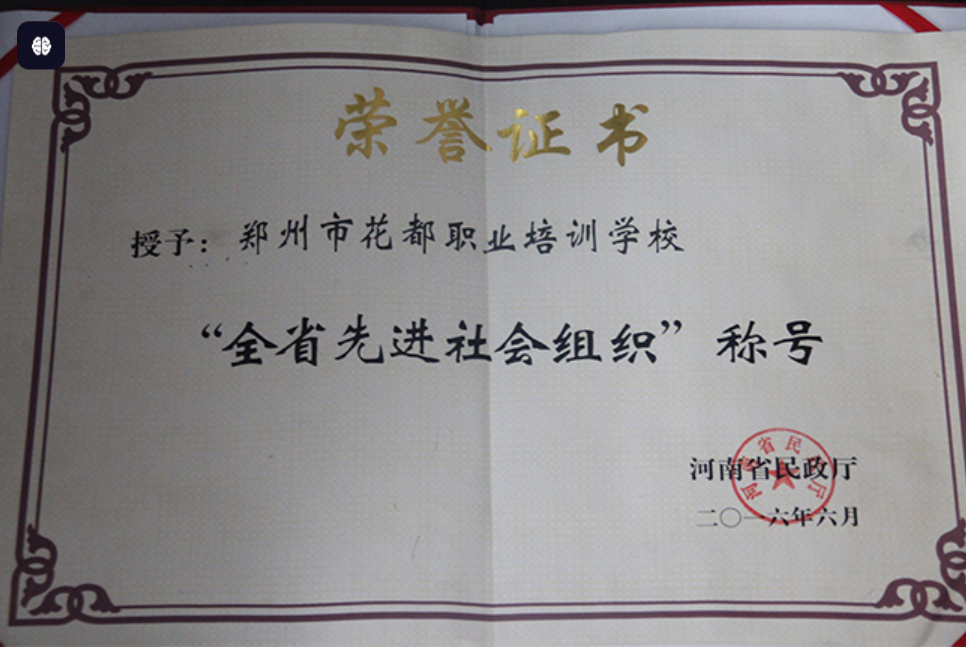 荣誉证书
授予：郑州市花都职业培训学校
“全省先进社会组织”称号
河南省民政厅
二〇一六年六月